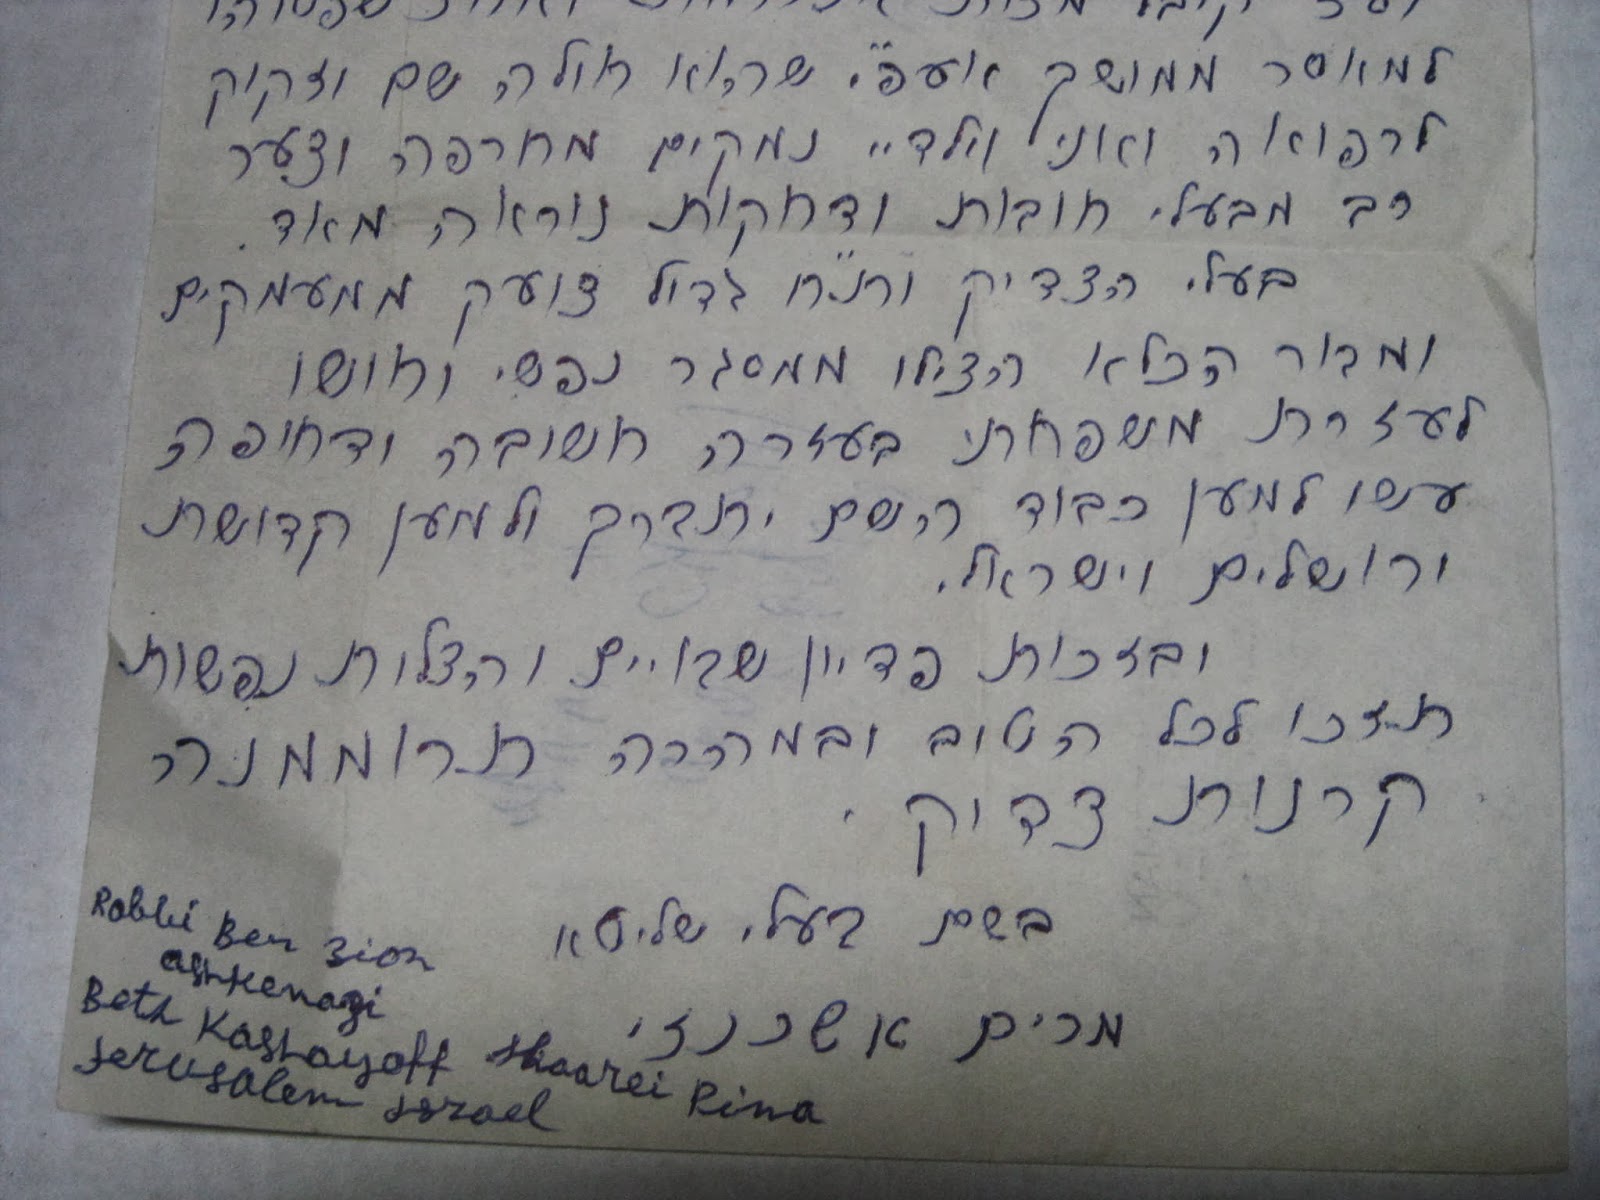 למאסר ממושך אעפ״י שהוא חולה שם וזקוק
לרפואה ואני וילדיי נמקים מחרפה וצער
רב מבעלי חובות ודחקות נוראה מאד.
בעלי הצדיק ות״ח גדול צועק ממעמקים
ומבור הכלא הצילו ממסגר נפשי וחושו
לעזרת משפחתי בעזרה חשובה ודחופה
עשו למען כבוד השם יתברך ולמען קדושת
ירושלים וישראל.
ובזכות פדיון שבויים והצלות נפשות
תזכו לכל הטוב ובמהרה תרוממנה
קרנות צדיק.
בשם בעלי שליטא
מרים אשכנזי
Rabbi Ben Zion
ashkenazi
Beth Kashayoff Shaarei Rina
Jerusalem Israel